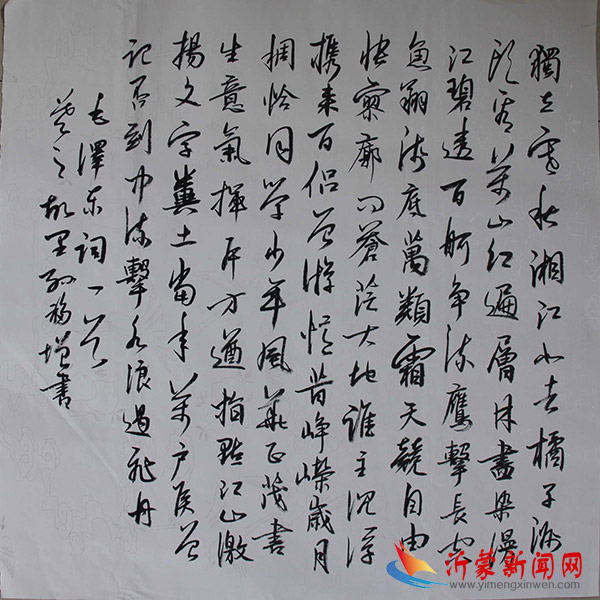 獨立寒秋湘江北去橘子洲
頭看萬山红遍層林盡染漫
江碧透百舸争流鷹擊長空
魚翔浅底萬類霜天競自由
悵寥廓问蒼茫大地誰主沉浮
携来百侣曾游憶昔峥嵘歲月
稠恰同学少年風華正茂書
生意氣揮斥方遒指點江山激
揚文字糞土當年萬户侯曾
记否到中流擊水浪遏飛舟
毛澤东词一首
羲之故里孙福增書
沂蒙新闻网
www.yimengxinwen.com